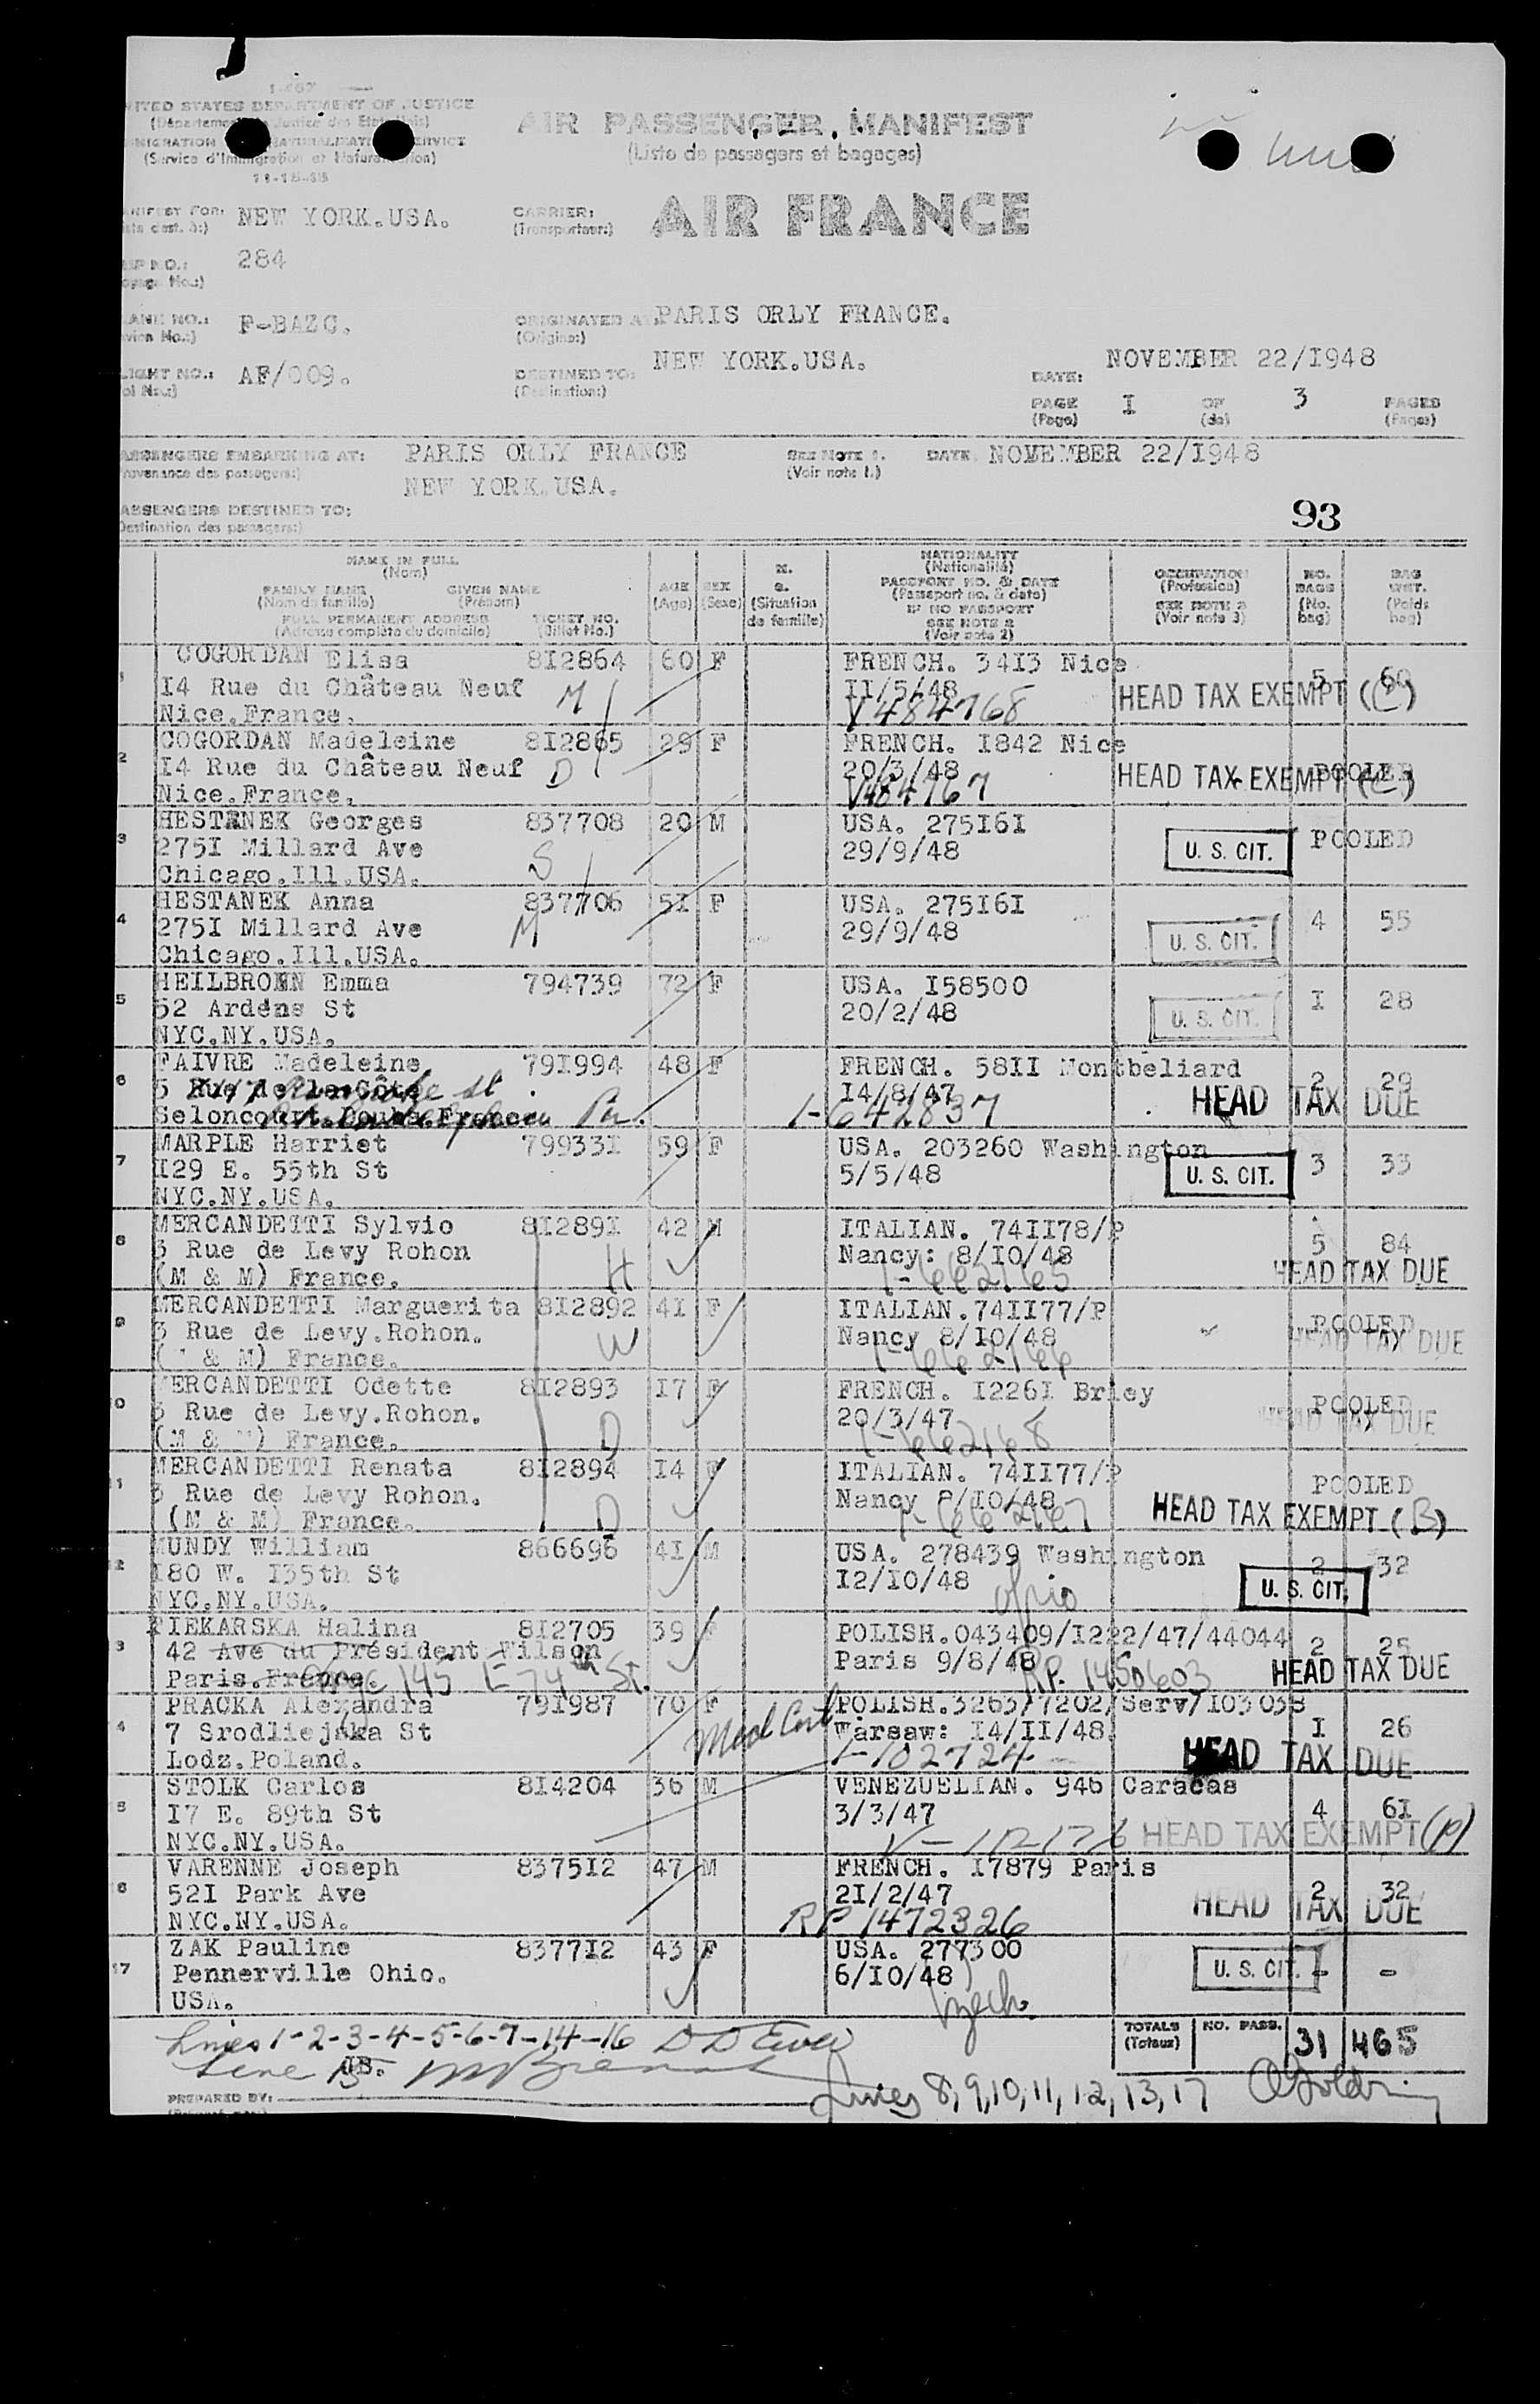 I-467
UNITED STATES DEPARTMENT OF JUSTICE
(Département de Justice des Etats Unis)
IMMIGRATION NATURALIZATION SERVICE
(Service d'Immigration et Naturalisation)
AIR PASSENGER MANIFEST
(Liste de passagers et bagages)
MANIFEST FOR: NEW YORK.USA.
CARRIER: AIR FRANCE
(Transporteur:)
TRIP NO.: 284
PLANE NO.: F-BAZC.
ORIGINATED AT: PARIS ORLY FRANCE.
(Origine:)
FLIGHT NO.: AF/009.
DESTINED TO: NEW YORK.USA.
(Destination:)
DATE: NOVEMBER 22/I948
PAGE I OF 3 PAGES
(Page) (de) (Pages)
PASSENGERS EMBARKING AT: PARIS ORLY FRANCE SEE NOTE 1. DATE NOVEMBER 22/I948
(Provenance des passagers:) (Voir note 1.)
NEW YORK.USA.
PASSENGERS DESTINED TO:
(Destination des passagers:)
93
NAME IN FULL
(Nom)
FAMILY NAME GIVEN NAME
(Nom de famille) (Prénom)
FULL PERMANENT ADDRESS TICKET NO.
(Adresse complète du domicile) (Billet No.)
AGE
(Age)
SEX
(Sexe)
M.
S.
(Situation
de famille)
NATIONALITY
(Nationalité)
PASSPORT NO. & DATE
(Passeport no. & date)
IF NO PASSPORT
SEE NOTE 2
(Voir note 2)
OCCUPATION
(Profession)
SEE NOTE 3
(Voir note 3)
NO.
BAGS
(No.
bag)
BAG
WGT.
(Poids
bag)
1 COGORDAN Elisa 8I2864 60 F FRENCH. 34I3 Nice 5 60
I4 Rue du Château Neuf M II/5/48 HEAD TAX EXEMPT (C)
Nice.France. V 484768
2 COGORDAN Madeleine 8I2865 29 F FRENCH. I842 Nice
I4 Rue du Château Neuf D 20/3/48 HEAD TAX EXEMPT (C) POOLED
Nice.France. V484767
3 HESTANEK Georges 837708 20 M USA. 275I6I POOLED
275I Millard Ave S 29/9/48 U. S. CIT.
Chicago.Ill.USA.
4 HESTANEK Anna 837706 5I F USA. 275I6I 4 55
275I Millard Ave M 29/9/48 U. S. CIT.
Chicago.Ill.USA.
5 HEILBRONN Emma 794739 72 F USA. I58500 I 28
52 Ardens St 20/2/48 U. S. CIT.
NYC.NY.USA.
6 FAIVRE Madeleine 79I994 48 F FRENCH. 58II Montbeliard 2 29
5 Rue de la Côte St I4/8/47 HEAD TAX DUE
Seloncourt.Doubs.France Pa. I-642837
7 MARPLE Harriet 79933I 59 F USA. 203260 Washington 3 33
I29 E. 55th St 5/5/48 U. S. CIT.
NYC.NY.USA.
8 MERCANDETTI Sylvio 8I289I 42 M ITALIAN. 74II78/P 5 84
3 Rue de Levy Rohon Nancy: 8/I0/48
(M & M) France. H I-662165 HEAD TAX DUE
9 MERCANDETTI Marguerita 8I2892 4I F ITALIAN.74II77/P POOLED
3 Rue de Levy.Rohon. W Nancy 8/I0/48 HEAD TAX DUE
(M & M) France. I-662166
10 MERCANDETTI Odette 8I2893 I7 F FRENCH. I226I Briey POOLED
3 Rue de Levy.Rohon. 20/3/47 HEAD TAX DUE
(M & M) France. D I-662168
11 MERCANDETTI Renata 8I2894 I4 F ITALIAN. 74II77/P POOLED
3 Rue de Levy Rohon. Nancy 8/I0/48 HEAD TAX EXEMPT (B)
(M & M) France. D I-662167
12 MUNDY William 866696 4I M USA. 278439 Washington 2 32
I80 W. I35th St I2/I0/48 U. S. CIT.
NYC.NY.USA. Ohio
13 PIEKARSKA Halina 8I2705 39 F POLISH.043409/I222/47/44044 2 25
42 Ave du Président Wilson Paris 9/8/48 HEAD TAX DUE
Paris.France. 145 E 74th St. RP. 1450603
14 PRACKA Alexandra 79I987 70 F POLISH.3263/7202/Serv/I03038 I 26
7 Srodliejska St Med Cert Warsaw: I4/II/48 HEAD TAX DUE
Lodz.Poland. I-102724
15 STOLK Carlos 8I4204 36 M VENEZUELIAN. 946 Caracas 4 6I
I7 E. 89th St 3/3/47 HEAD TAX EXEMPT (P)
NYC.NY.USA.
16 VARENNE Joseph 8375I2 47 M FRENCH. I7879 Paris 2 32
52I Park Ave 2I/2/47 HEAD TAX DUE
NYC.NY.USA. RP 1472326
17 ZAK Pauline 8377I2 43 F USA. 277300 - -
Pennerville Ohio. 6/I0/48 U. S. CIT.
USA. Czech.
TOTALS NO. PASS. 31 465
(Totaux)
Lines 1-2-3-4-5-6-7-14-16
Line 15
PREPARED BY:
Lines 8,9,10,11,12,13,17